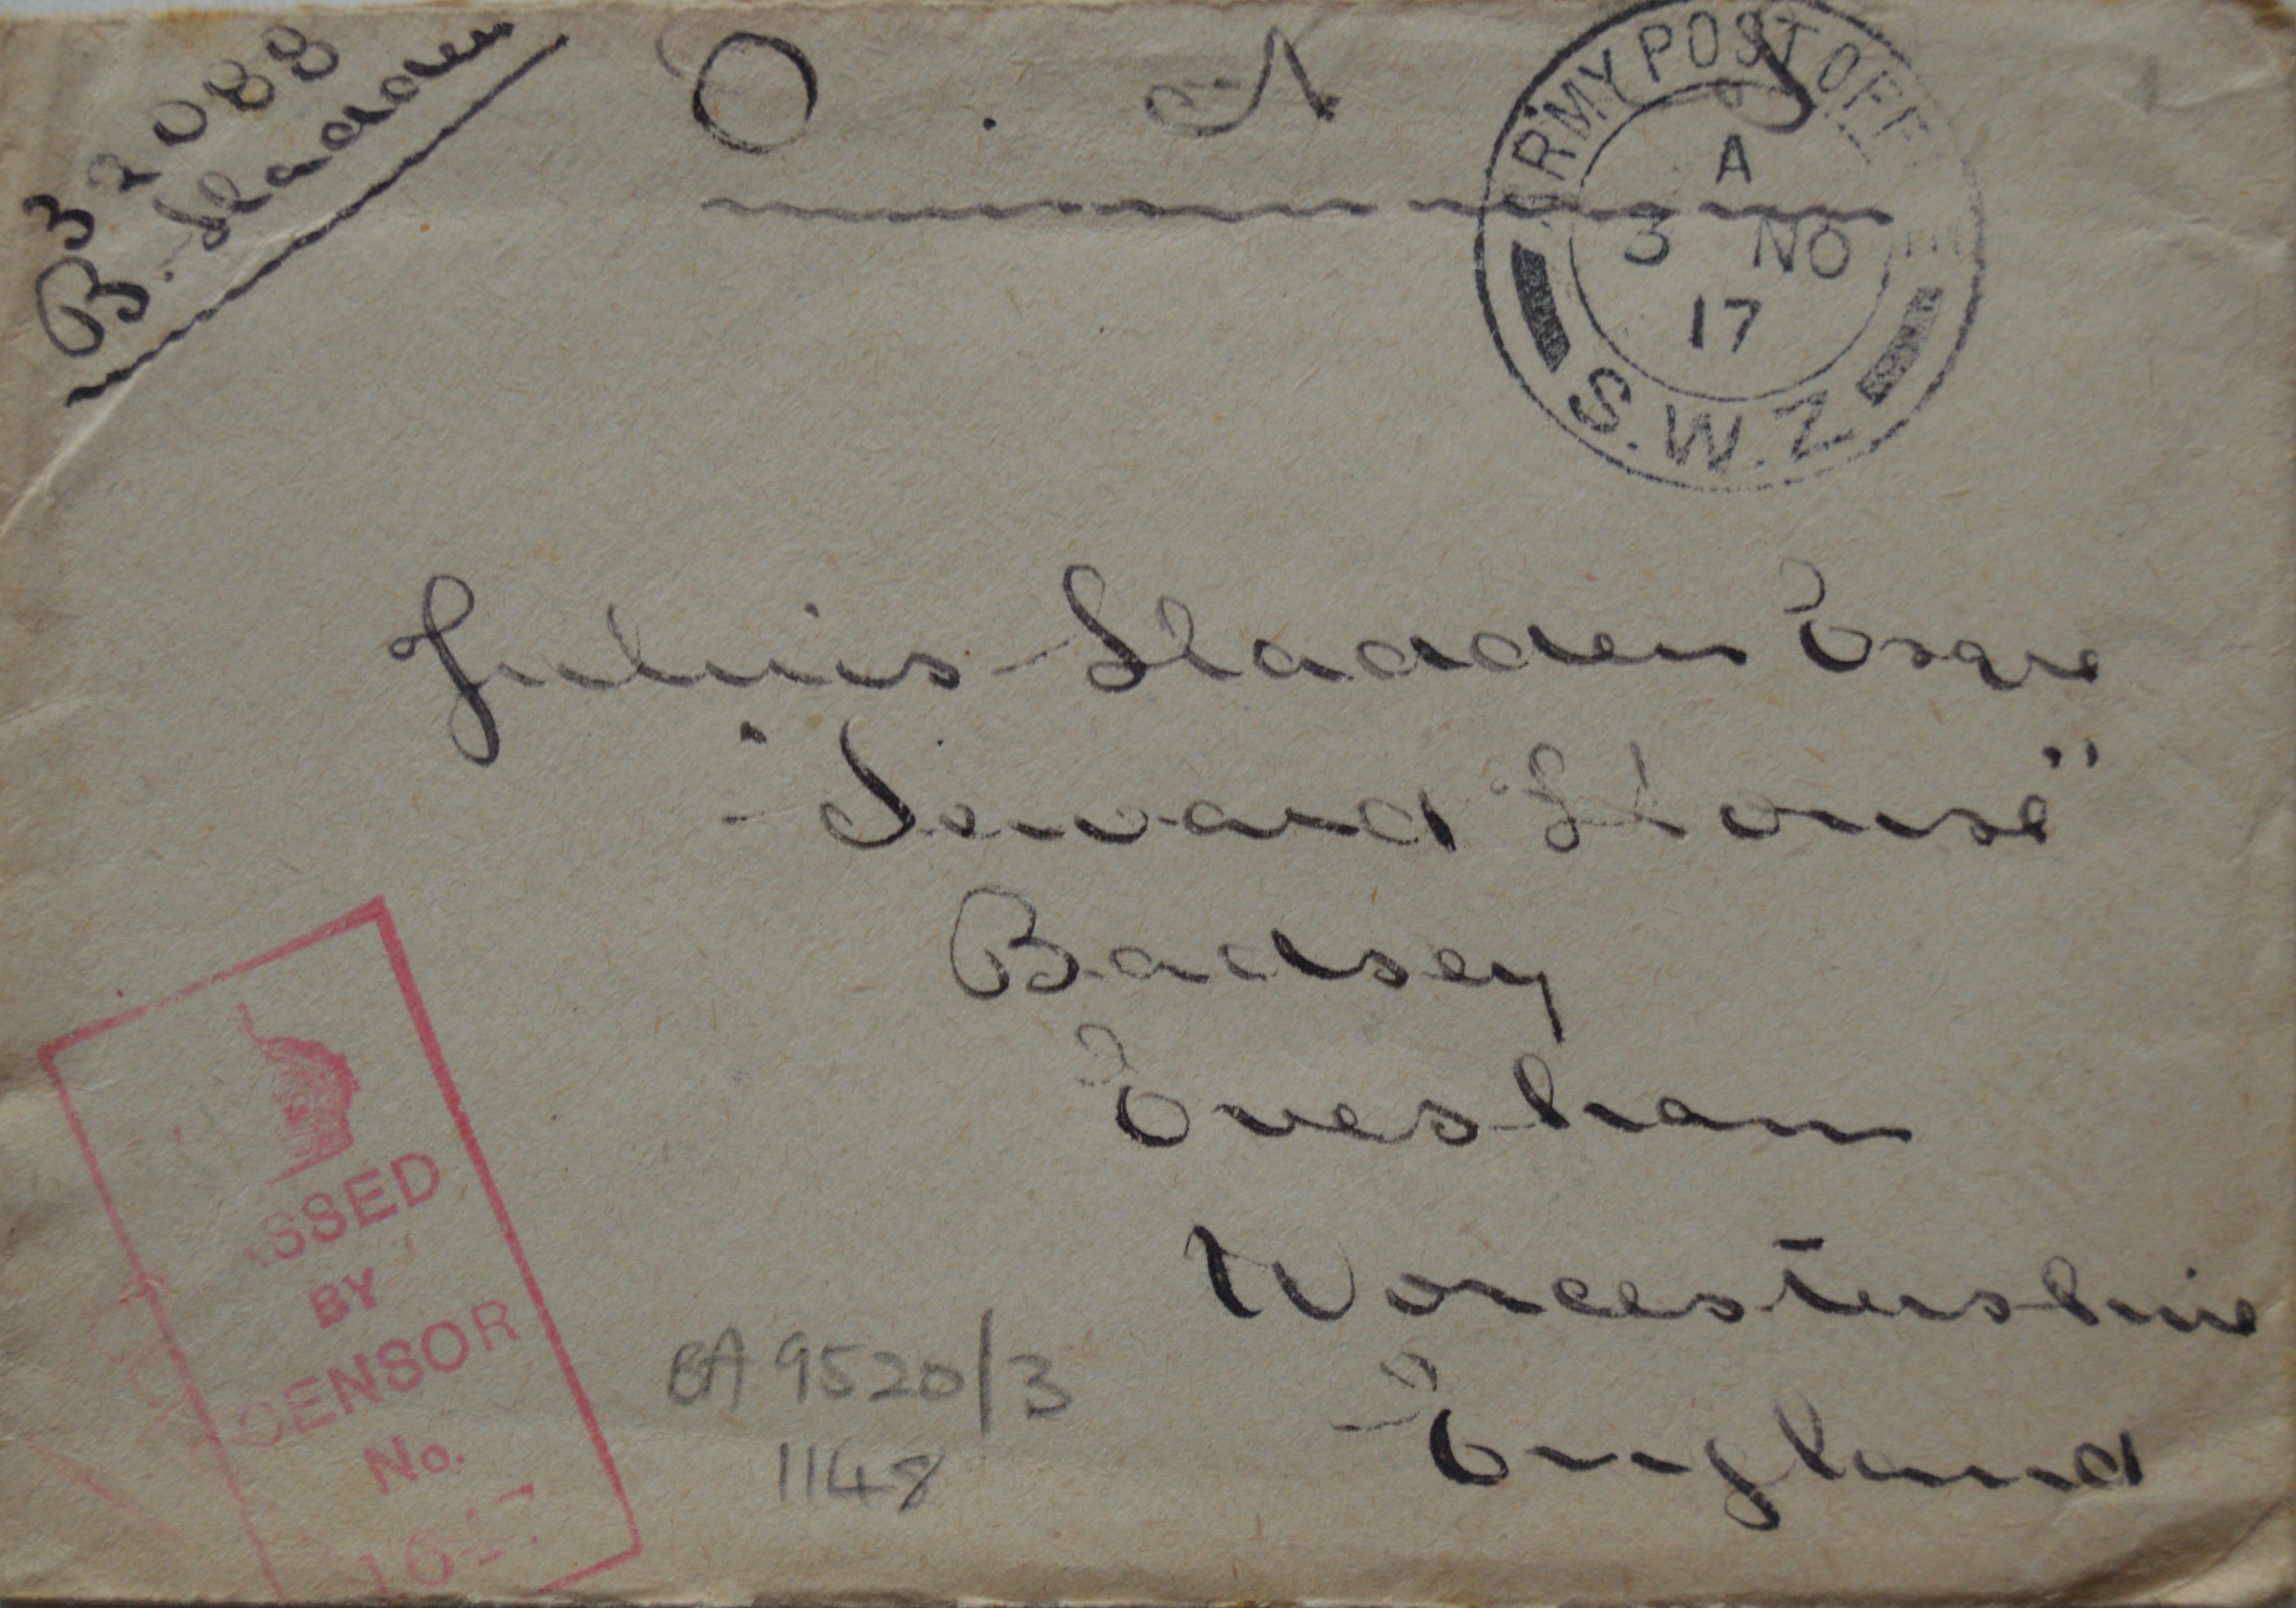 B32088
B. Sladden
O. A. S
ARMY POST OFFI
A
3 NO
17
S.W.Z
Julius Sladden Esqre
"Seward House"
Badsey
Evesham
Worcestershire
England
SSED
BY
CENSOR
No.
BA 9520/3
1148